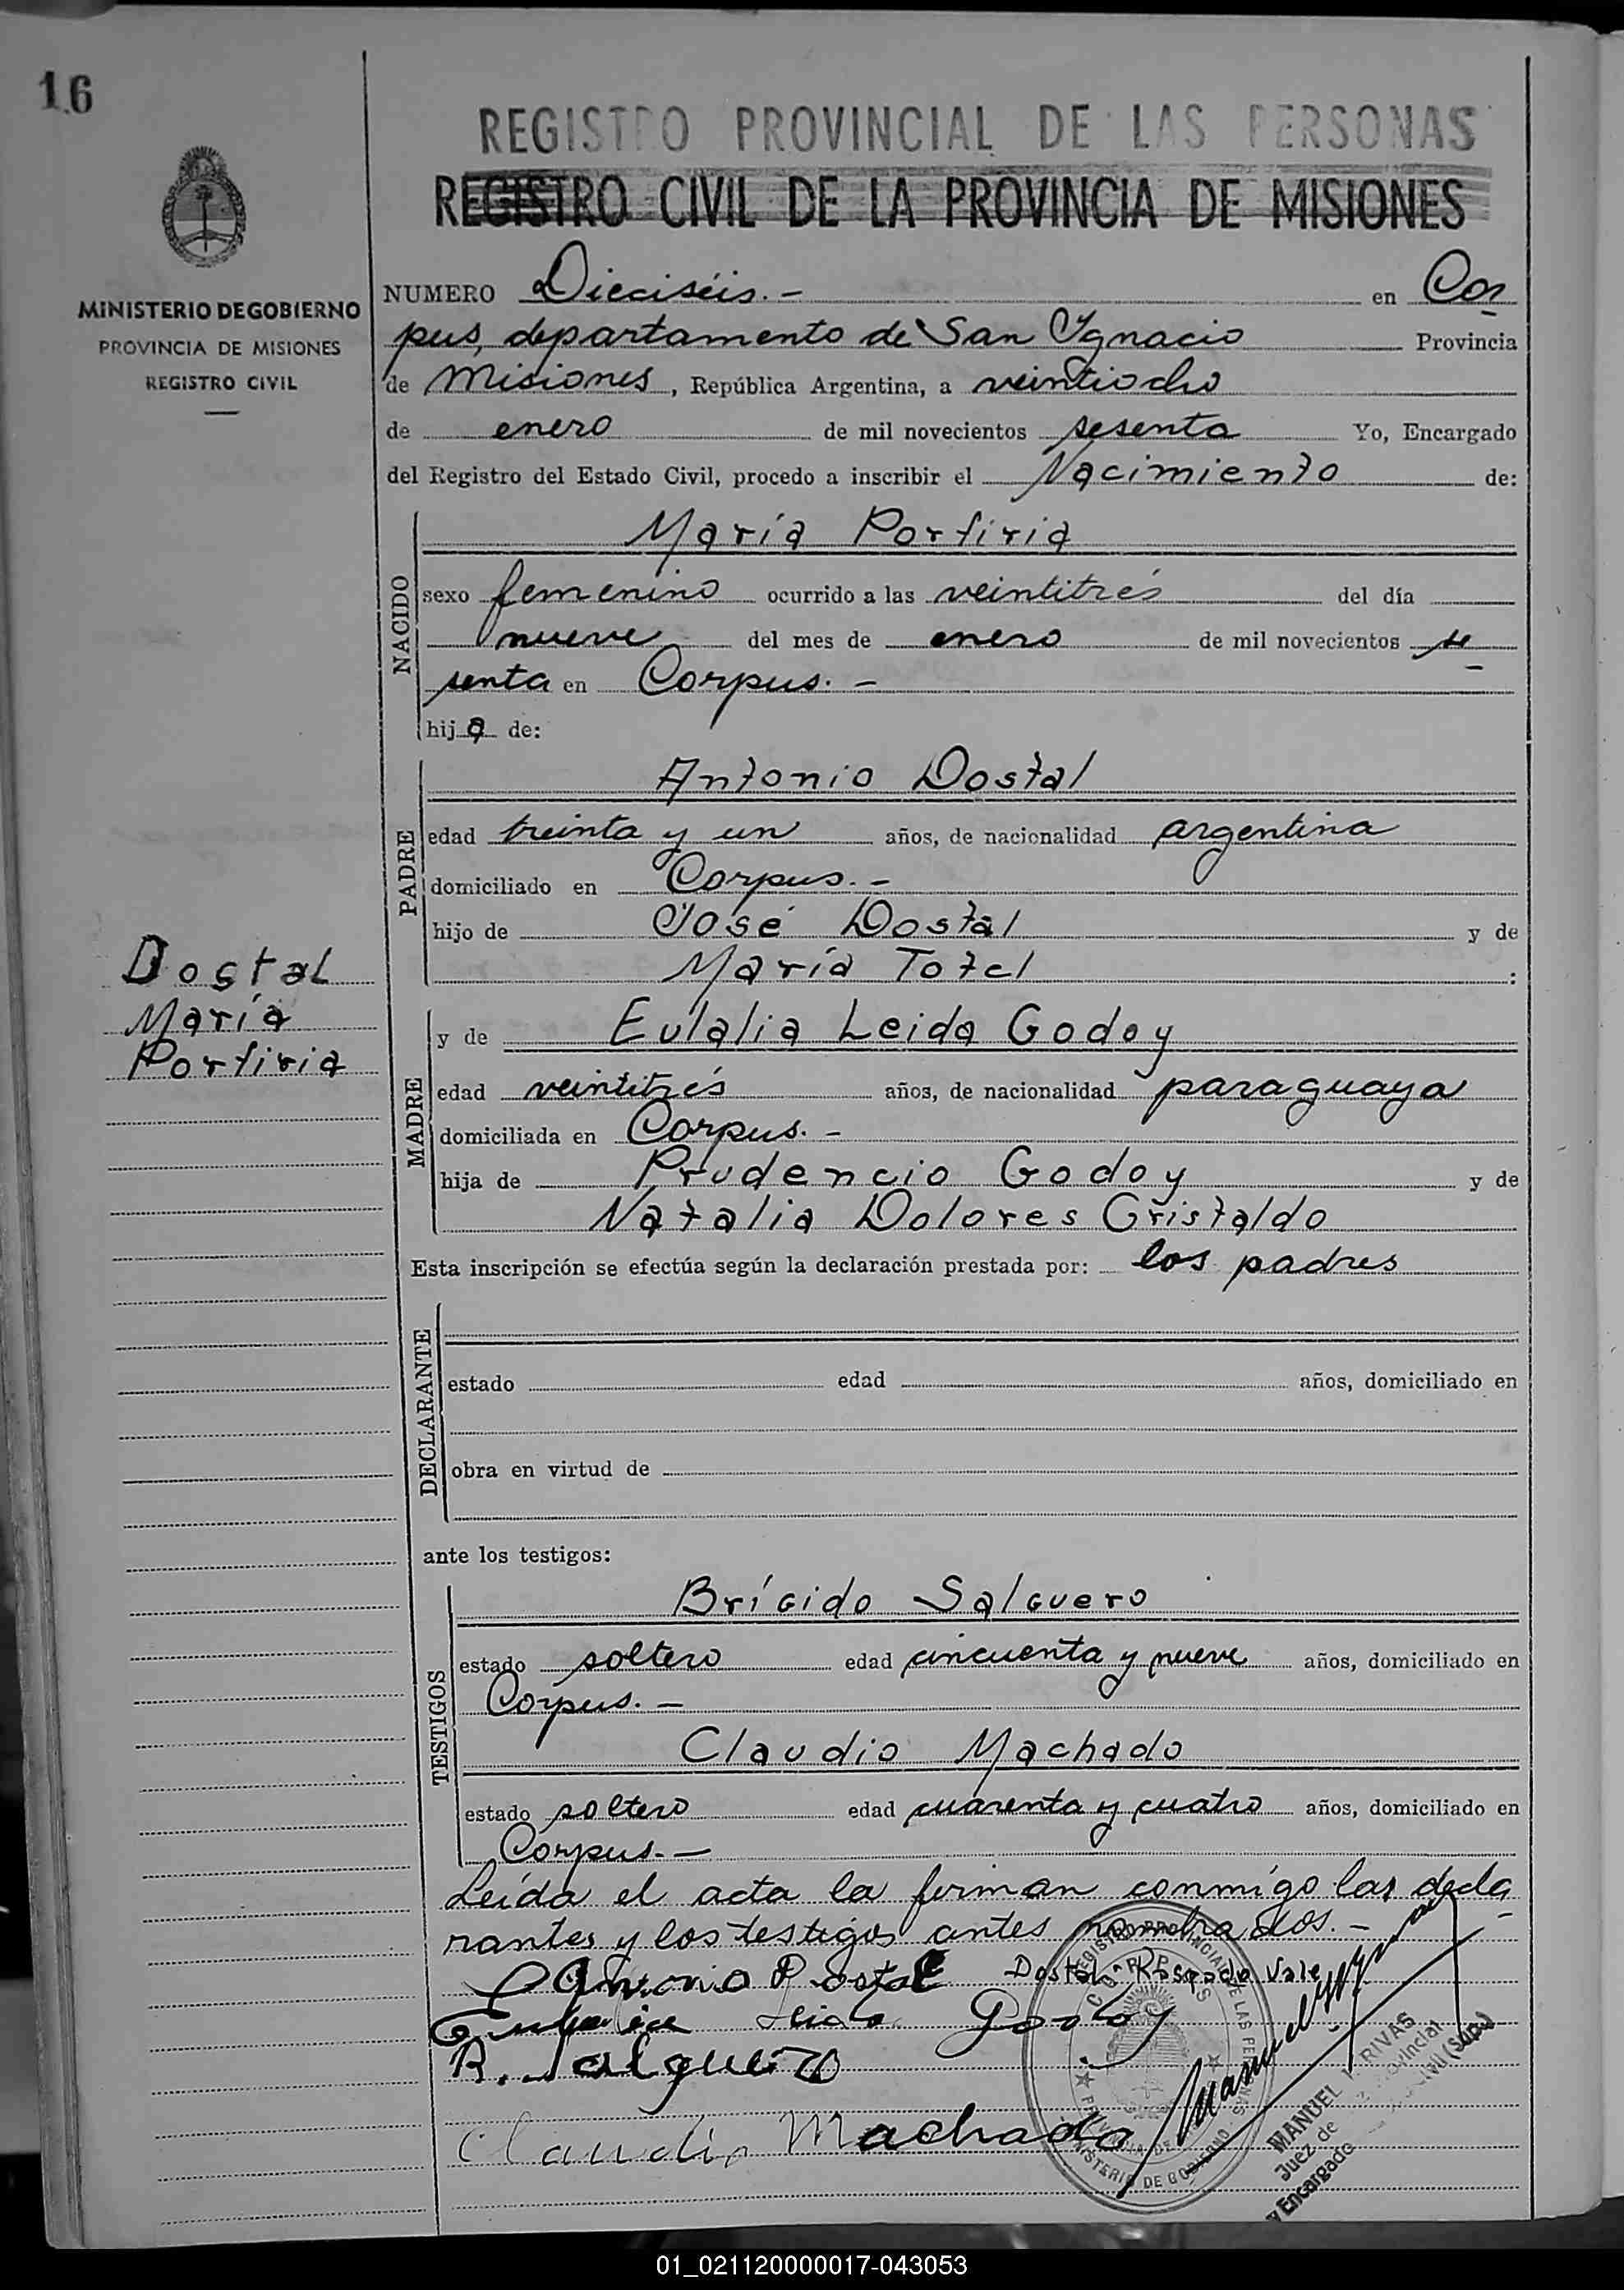 16
REGISTRO PROVINCIAL DE LAS PERSONAS
REGISTRO CIVIL DE LA PROVINCIA DE MISIONES
MINISTERIO DE GOBIERNO
PROVINCIA DE MISIONES
REGISTRO CIVIL
NUMERO Dieciséis.- en Cor
pus, departamento de San Ignacio Provincia
de Misiones, República Argentina, a veintiocho
de enero de mil novecientos sesenta Yo, Encargado
del Registro del Estado Civil, procedo a inscribir el Nacimiento de:
NACIDO
María Porfiria
sexo femenino ocurrido a las veintitrés del día
nueve del mes de enero de mil novecientos se
senta en Corpus.-
hija de:
PADRE
Antonio Dostal
edad treinta y un años, de nacionalidad argentina
domiciliado en Corpus.-
hijo de José Dostal y de
María Totel :
Dostal
María
Porfiria
MADRE
y de Eulalia Leida Godoy
edad veintitrés años, de nacionalidad paraguaya
domiciliada en Corpus.-
hija de Prudencio Godoy y de
Natalia Dolores Gristaldo
Esta inscripción se efectúa según la declaración prestada por: los padres
DECLARANTE
estado edad años, domiciliado en
obra en virtud de
ante los testigos:
TESTIGOS
Brígido Salguero
estado soltero edad cincuenta y nueve años, domiciliado en
Corpus.-
Claudio Machado
estado soltero edad cuarenta y cuatro años, domiciliado en
Corpus.-
Leída el acta la firman conmigo los decla
rantes y los testigos antes nombrados.-
Antonio Dostal Dostal - Raspado Vale
Eulalia Leida Godoy
B. Salguero
Claudio Machado
MANUEL RIVAS
Juez de
y Encargado
01_021120000017-043053